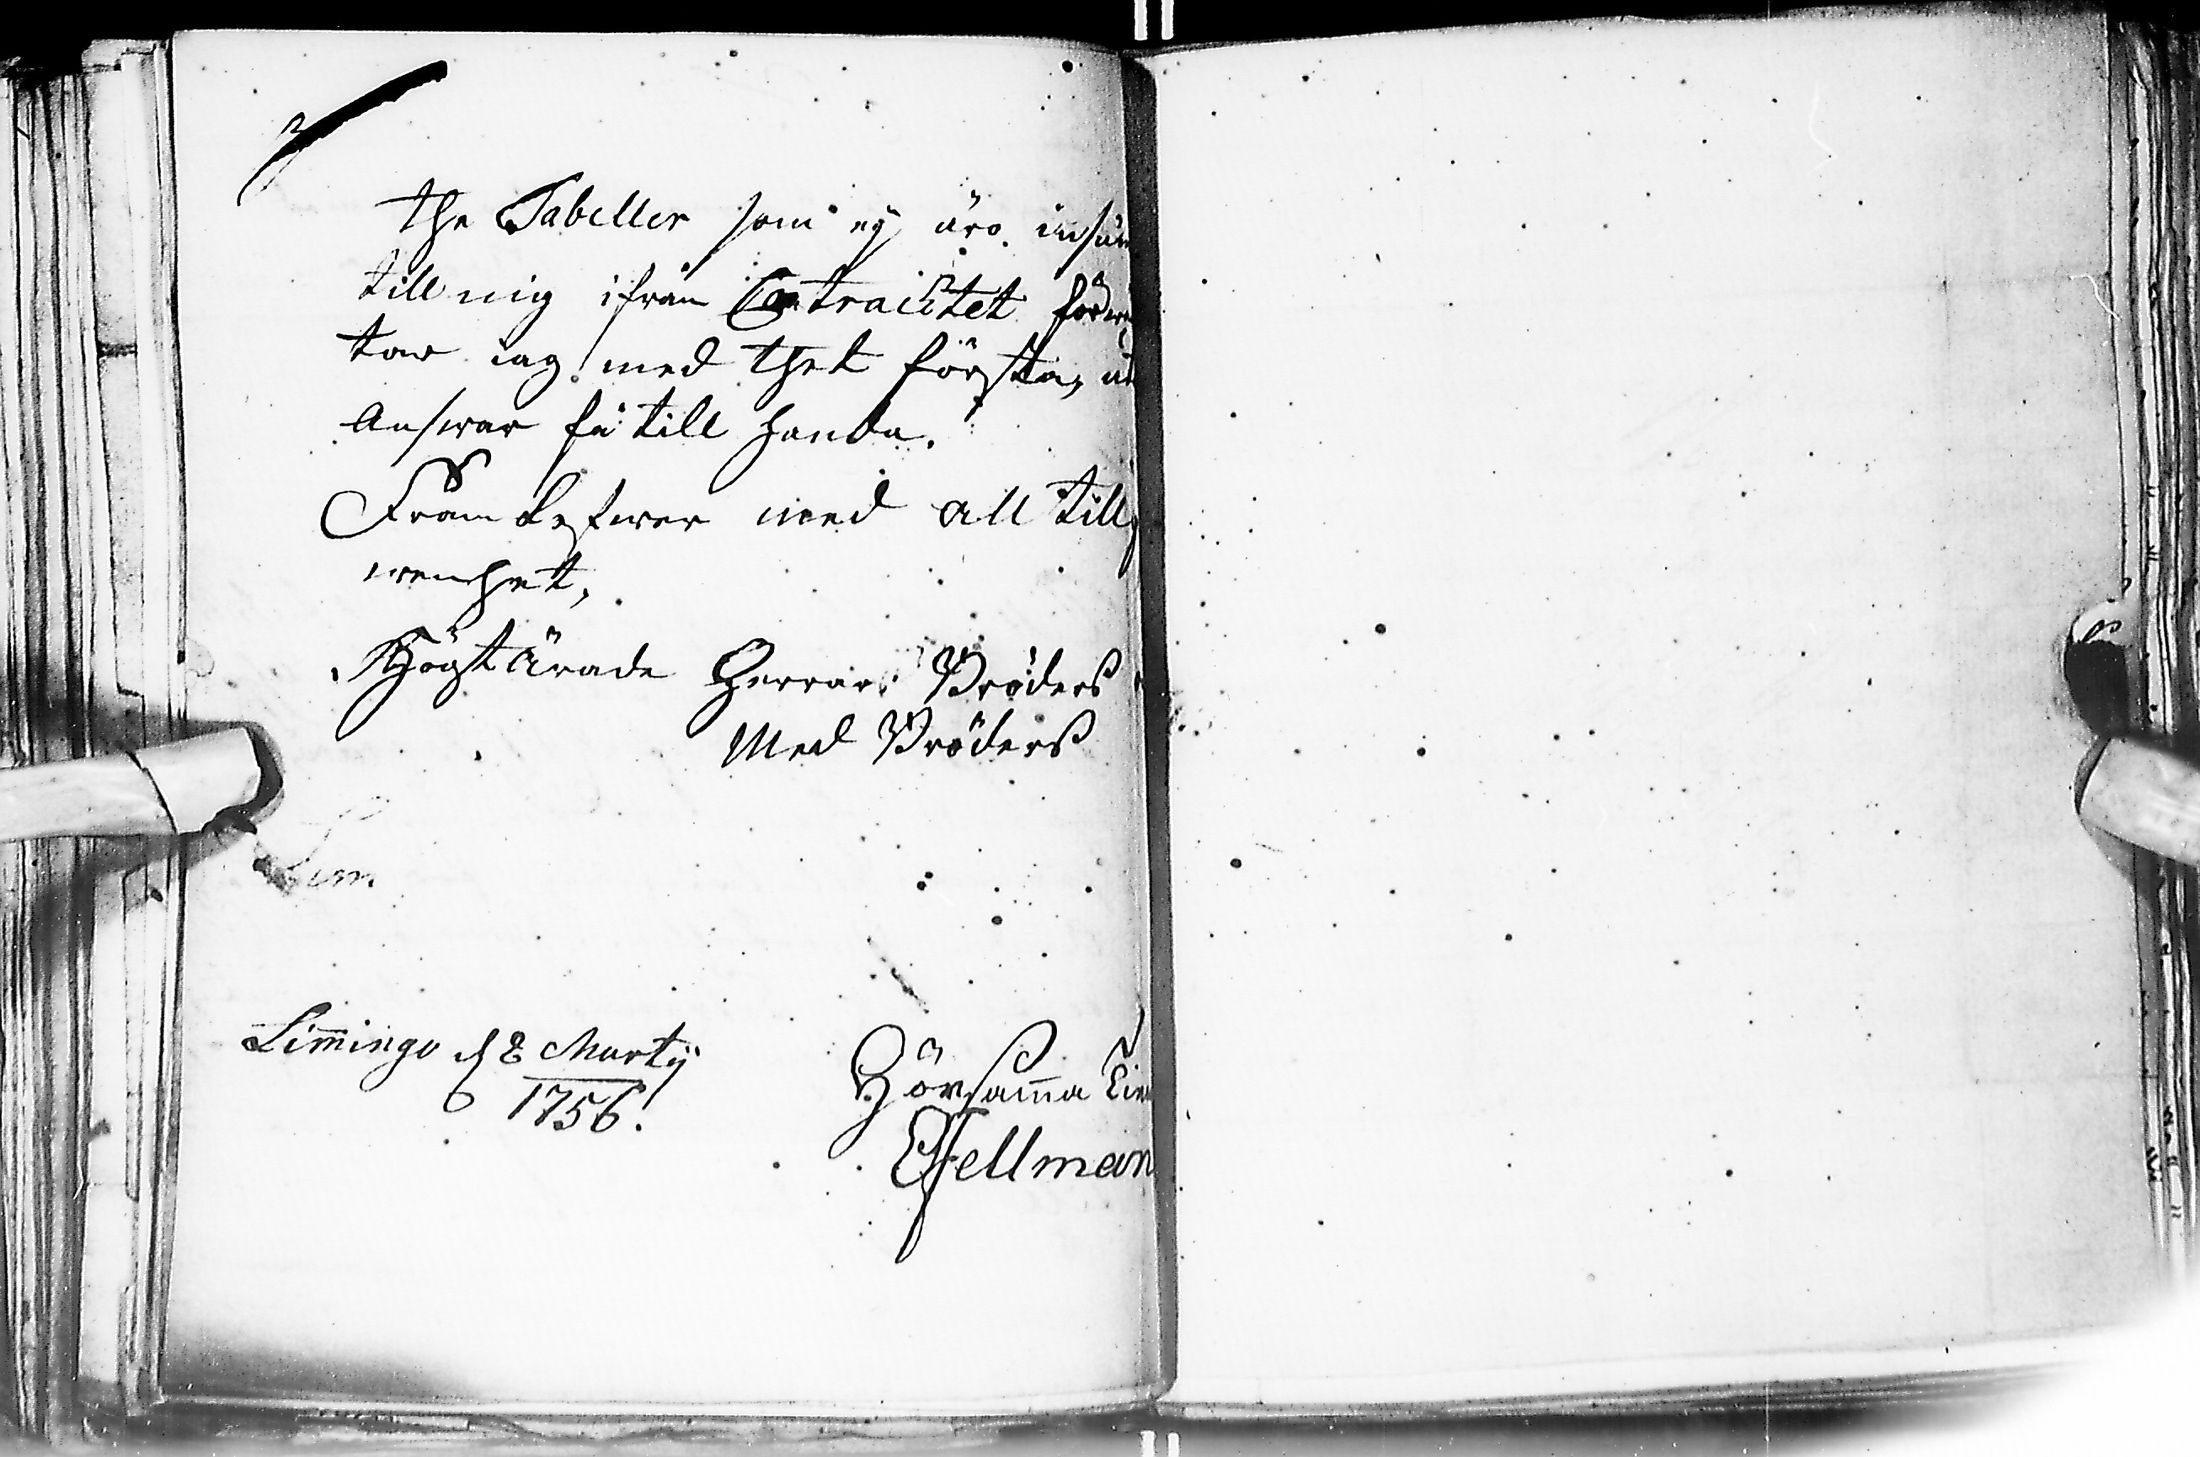 the Tabeller som ey äro insän
till mig ifrån Contractet förwä
tar iag med thet första, ut
Answar få till handa.
Framlefwer med all till
wenhet,
Högtärade Herrars Bröders
Med Bröders
Lim
Lim̄ingo d 2 Martij
1756.
Hörsam̄a Tien
EFellman